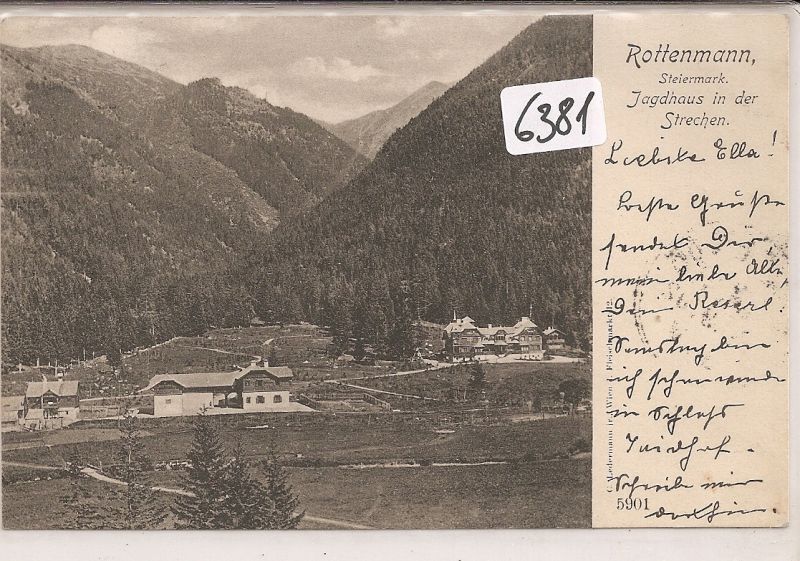 Rottenmann,
Steiermark.
Jagdhaus in der
Strechen.
6381
Liebste Ella!
beste Grüße
sendet Dir,
mein liebe Alte,
Dein Reserl.
Samstag bin
ich schon wieder
in Schloß
Schreibe mir
dorthin.
C. Ledermann jr., Wien I, Fleischmarkt 12
5901